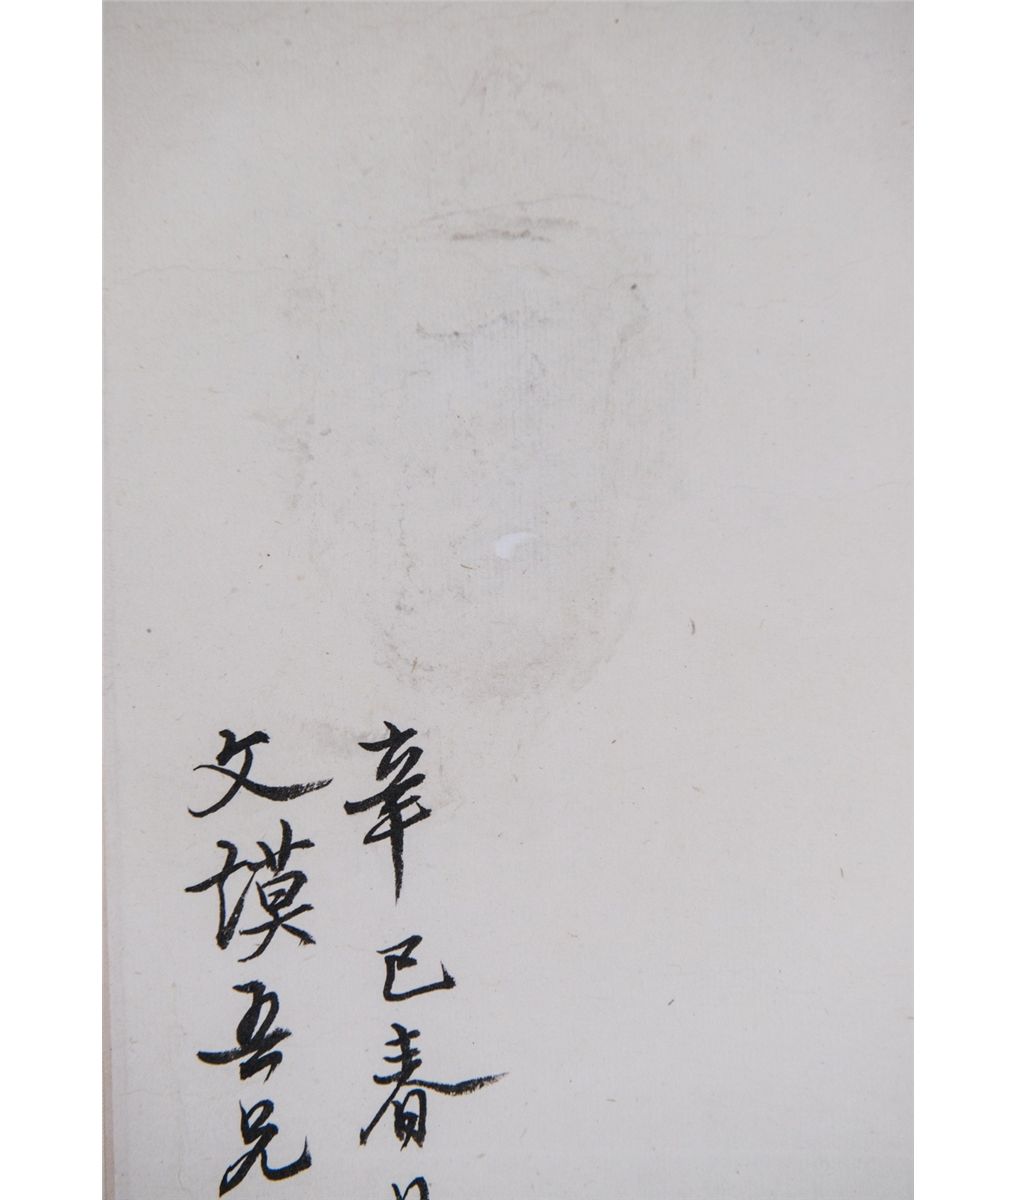 辛巳春
文謨吾兄